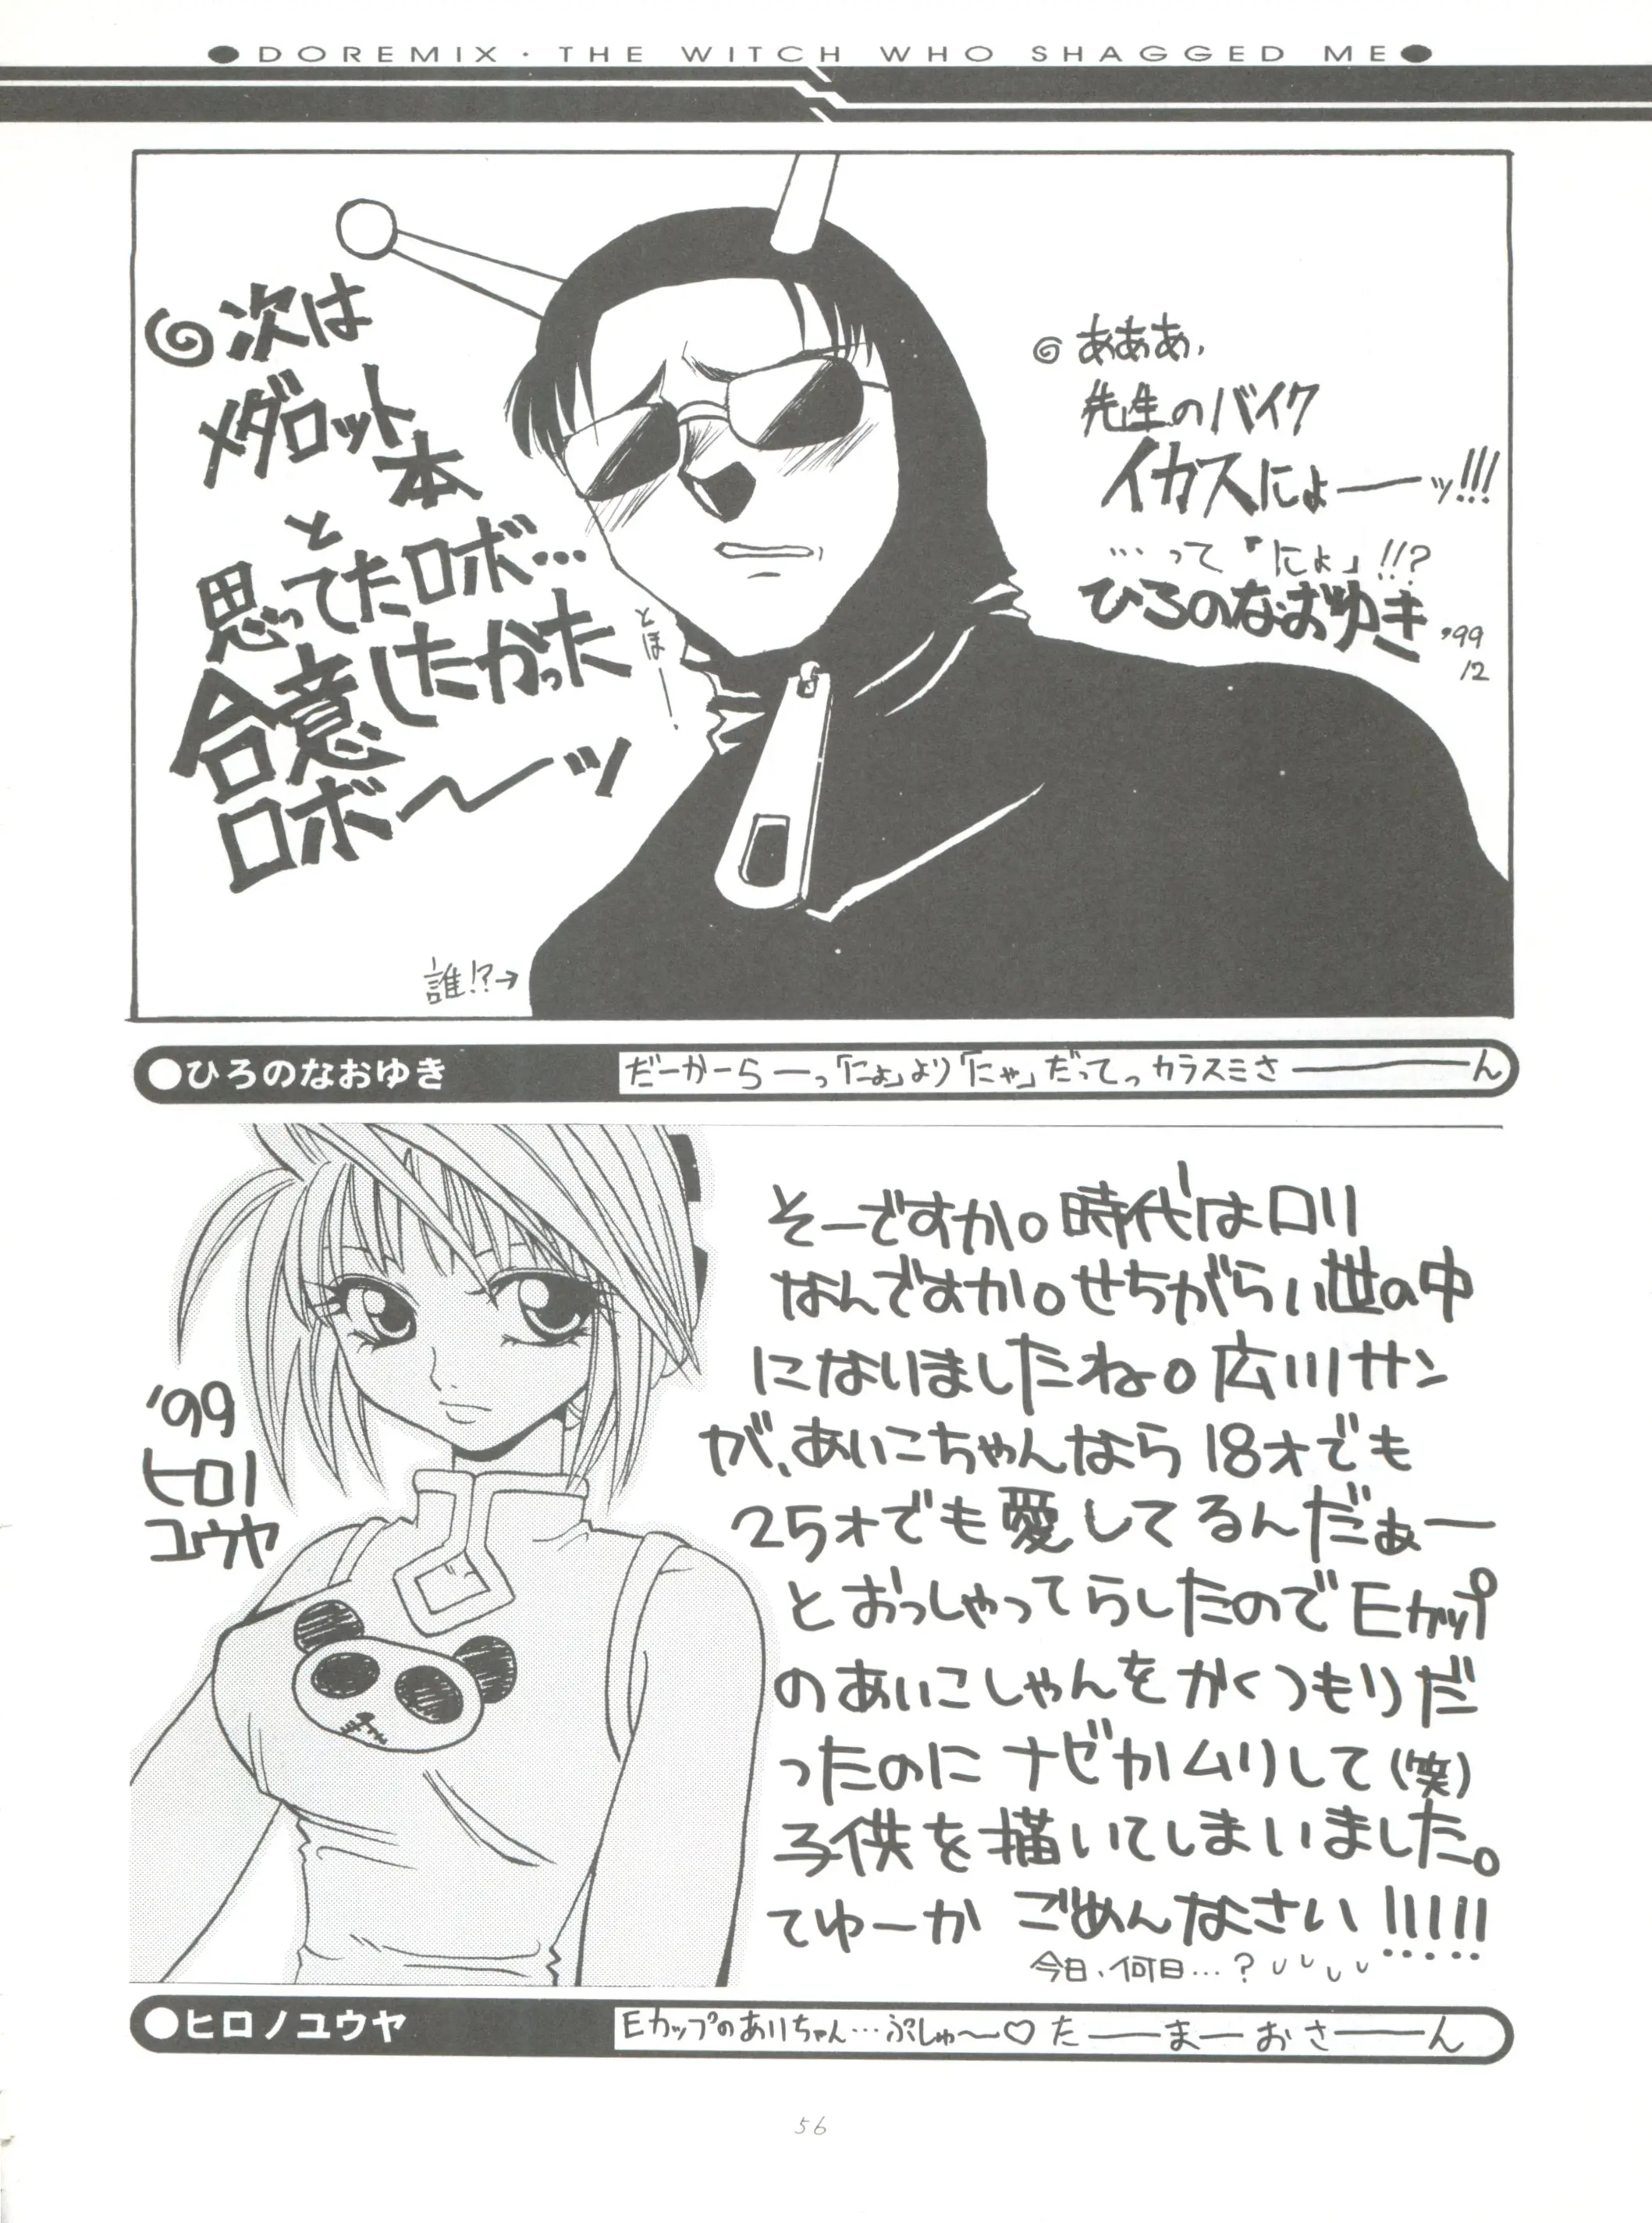 ●DOREMIX・THE WITCH WHO SHAGGED ME●
次は
メダロット
本
と
思ってたロボ…
合意したかった
ロボ〜ッ
とほー
誰!?→
あああ、
先生のバイク
イカスにょ――ッ!!!
…って『にょ』!!?
ひろのなおゆき '99
12
●ひろのなおゆき
だーかーらーっ「にょ」より「にゃ」だってっ カラスミさ――――ん
そーですか。時代はロリ
なんですか。せちがらい世の中
になりましたね。広川サン
が、あいこちゃんなら18才でも
25才でも愛してるんだぁー
とおっしゃってらしたのでEカップ
のあいこしゃんをかくつもりだ
ったのにナゼかムリして(笑)
子供を描いてしまいました。
てゆーか ごめんなさい!!!!!
今日、何日…?
'99
ヒロノ
ユウヤ
●ヒロノユウヤ
Eカップのあいちゃん…ぷしゅ〜♡ た――ま―おさ――ん
56